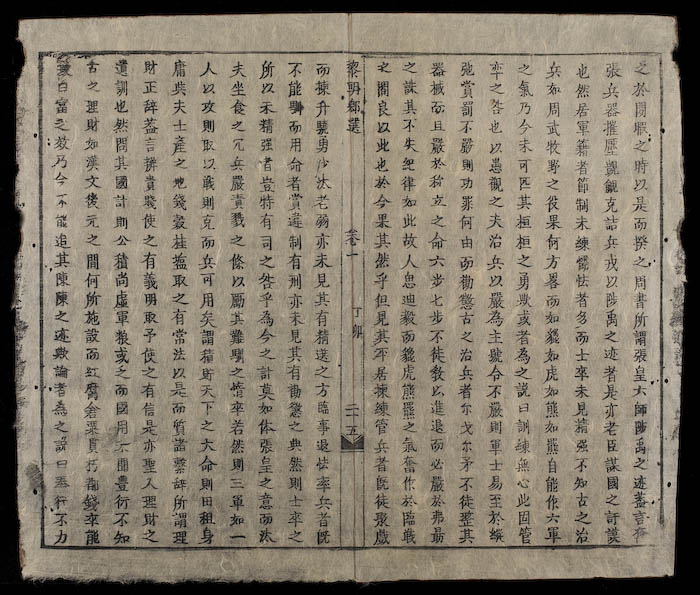 之於閒暇之時以是而揆之周書所謂張皇六師陟禹之迹蓋言
張兵器摧壓覬覦克詰兵戎以陟禹之迹者是亦老臣謀國之訏謨
也然居軍籍者節制未練懦怯者多而士卒未見精强不知古之治
兵如周武牧野之役果何方畧而如貔如虎如熊如羆自能作六軍
之氣乃今未可匹其桓桓之勇歟或者為之說曰訓練無心此固管
卒之咎也以愚觀之夫治兵以嚴為主號令不嚴則軍士易至於縱
弛賞罰不嚴則功罪何由而勸懲古之治兵者尔戈尔矛不徒整其
器械而且嚴於矜立之命六步七步不徒教以進退而必嚴於弗勗
之誅其不失紀律如此故人思迪毅而貔虎熊羆之氣奮作於臨戰
之閒良以此也於今果其然乎但見其平居揀練管兵者既徒聚戲
黎朝鄉選 卷一 丁卯 二十五
而揀升驍勇沙汰老弱亦未見其有精選之方臨事退怯率兵者既
不能馭而用命者賞違制有刑亦未見其有勸懲之典然則士卒之
所以未精强者豈特有司之咎乎為今之計莫如体張皇之意而汰
夫坐食之冗兵嚴責戮之條以勵其難馭之惰卒若然則三軍如一
人以攻則取以戰則克而兵可用矣謂積貯天下之大命則田租身
庸與夫土產之地錢穀桂塩取之有常法以是而質諸繫辞所謂理
財正辞蓋言辨貴賤使之有義明取予使之有信是亦聖人理財之
遺訓也然問其國計則公積尚虛軍粮或乏而國用不聞豊衍不知
古之理財如漢文後元之閒何所施設而紅腐倉粟貫朽錢率能
富之效乃今不能追其陳陳之迹歟論者為之說曰奉行不力